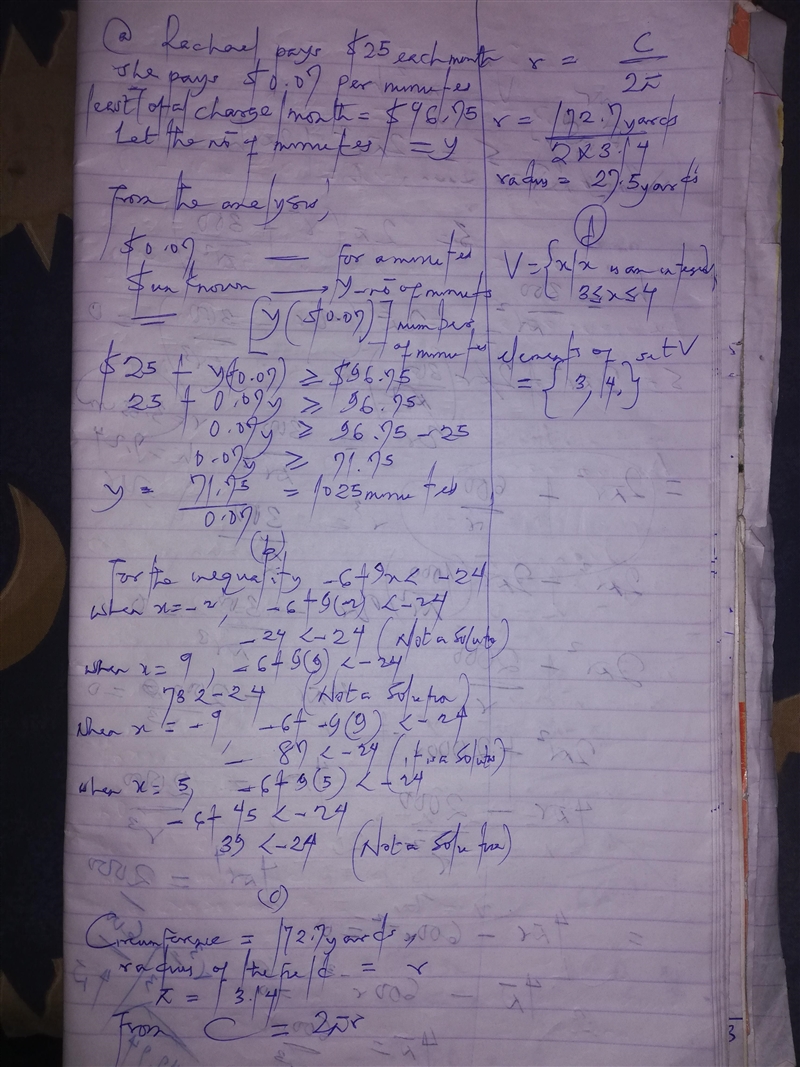 (a) Rachael pays $25 each month
she pays $0.07 per minutes
least of a charge/month = $96.75
Let the no of minutes = y
From the analysis,
$0.07 — for a minutes
$unknown → y - no of minutes
[y($0.07)] number of minutes
$25 + y(0.07) ≥ $96.75
25 + 0.07y ≥ 96.75
0.07y ≥ 96.75 - 25
0.07y ≥ 71.75
y = 71.75 / 0.07 = 1025 minutes
(b)
For the inequality -6+9x < -24
when x = -2, -6+9(-2) < -24
-24 < -24 (Not a Solution)
when x = 9, -6+9(9) < -24
78 < -24 (Not a Solution)
when x = -9 -6+-9(9) < -24
- 87 < -24 (it is a Solution)
when x = 5, -6+9(5) < -24
-6+45 < -24
39 < -24 (Not a Solution)
(c)
Circumference = 172.7 yards,
radius of the field = r
π = 3.14
From C = 2πr
r = C / 2π
r = 172.7 yards / 2x3.14
radius = 27.5 yards
(d)
V = {x/x is an integer,
3≤x≤4
elements of set V
= {3, 4,}